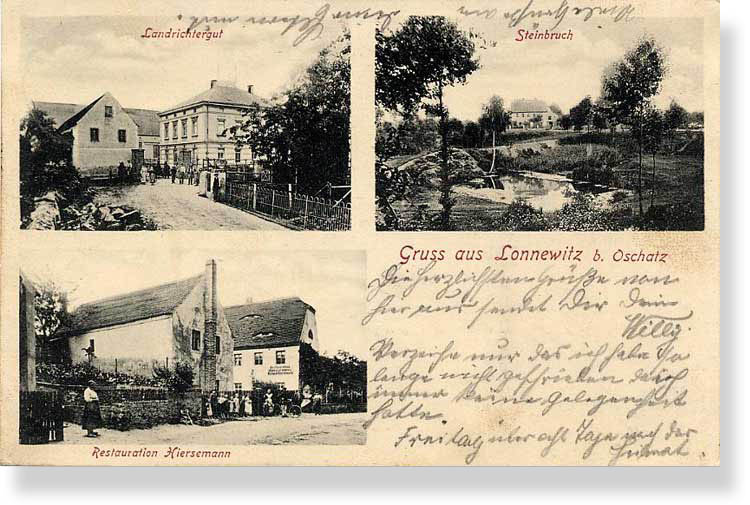 Landrichtergut
Steinbruch
Gruss aus Lonnewitz b. Oschatz
Die herzlichsten Grüße von
hier aus sendet Dir Dein
Willi.
Verzeihe nur das ich habe So
lange nicht geschrieben da ich
immer keine Gelegenheit
hatte.
Freitag über acht Tage nach der
Heimat.
Restauration Hiersemann